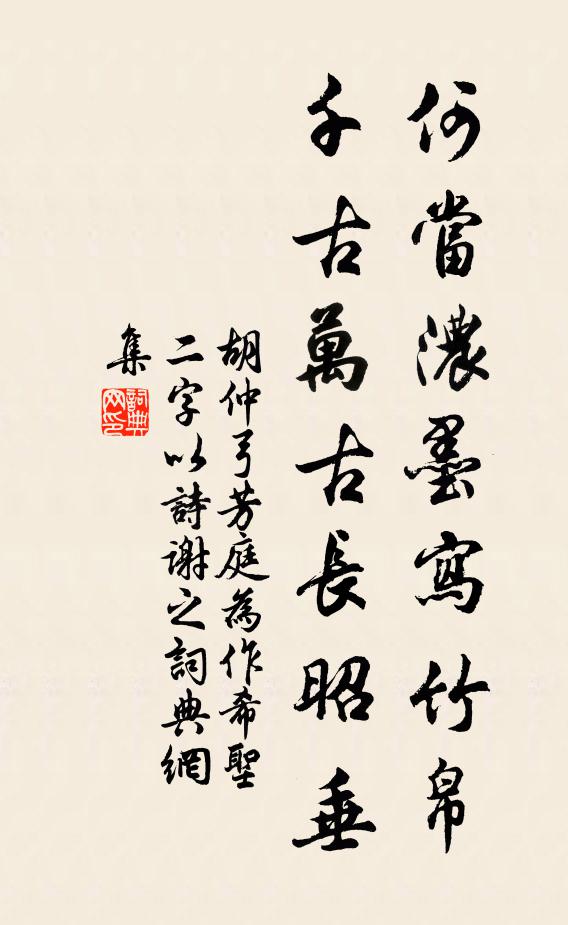 何當濃墨寫竹帛
千古萬古長昭垂
胡仲弓芳庭為作希聖
二字以詩謝之詞典網
集
詞典
网印